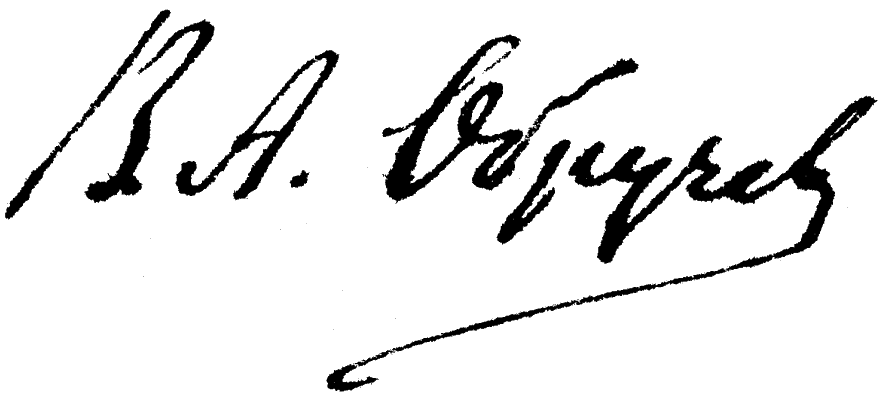 В. А. Обручев